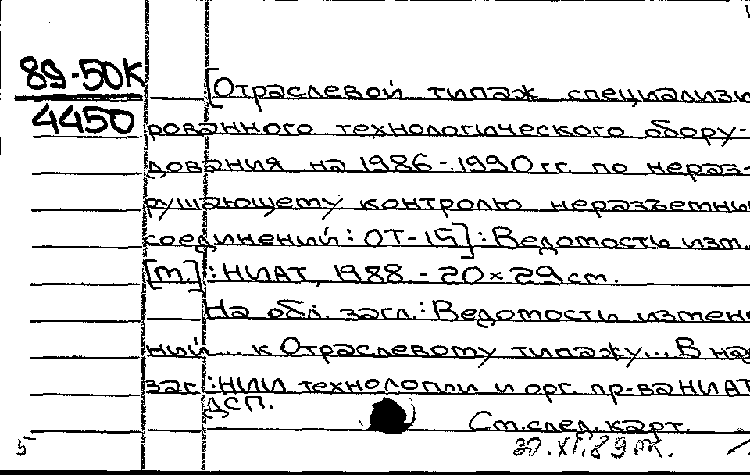 89-50К
4450
[Отраслевой типаж специализи
рованного технологического обору-
дования на 1986-1990 гг. по нераз-
рушающему контролю неразъемны
соединений: ОТ-15]: Ведомость изм.
[М.]: НИАТ, 1988 - 20×29 см.
На обл. загл.: Ведомость измене
ний ... к Отраслевому типажу... В на
заг.: НИИ технологии и орг. пр-ва НИАТ
ДСП.
См. след. карт.
5